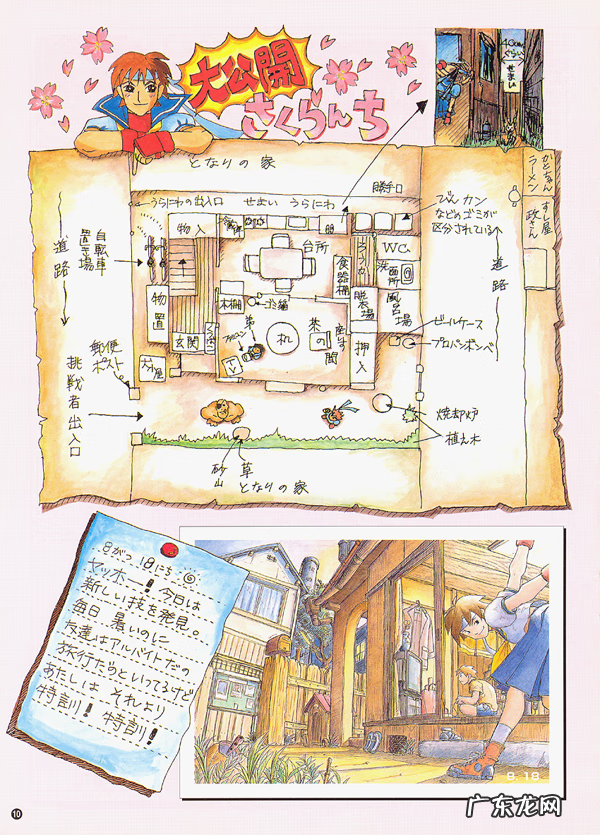 大公開
さくらんち
40cm
ぐらい
せまい
となりの家
勝手口
うらにわの出入口
せまい うらにわ
びん カン
などのゴミが
区分されている
かとちゃん
ラーメン
すし屋
政さん
道路
自転車
置き場
物入
台所
W.C.
洗面所
食器棚
脱衣場
風呂場
道路
物置
本棚
ゴミ箱
玄関
弟
ファミコン
机
茶の間
押入
TV
犬小屋
ビールケース
プロパンボンベ
郵便
ポスト
挑戦者出入口
焼却炉
植え木
砂山
草
となりの家
8がつ 18にち
ヤッホー! 今日は
新しい技を発見。
毎日 暑いのに
友達はアルバイトだの
旅行だらといってるけど
あたしは それより
特訓! 特訓!
8 18
10
广东龙网